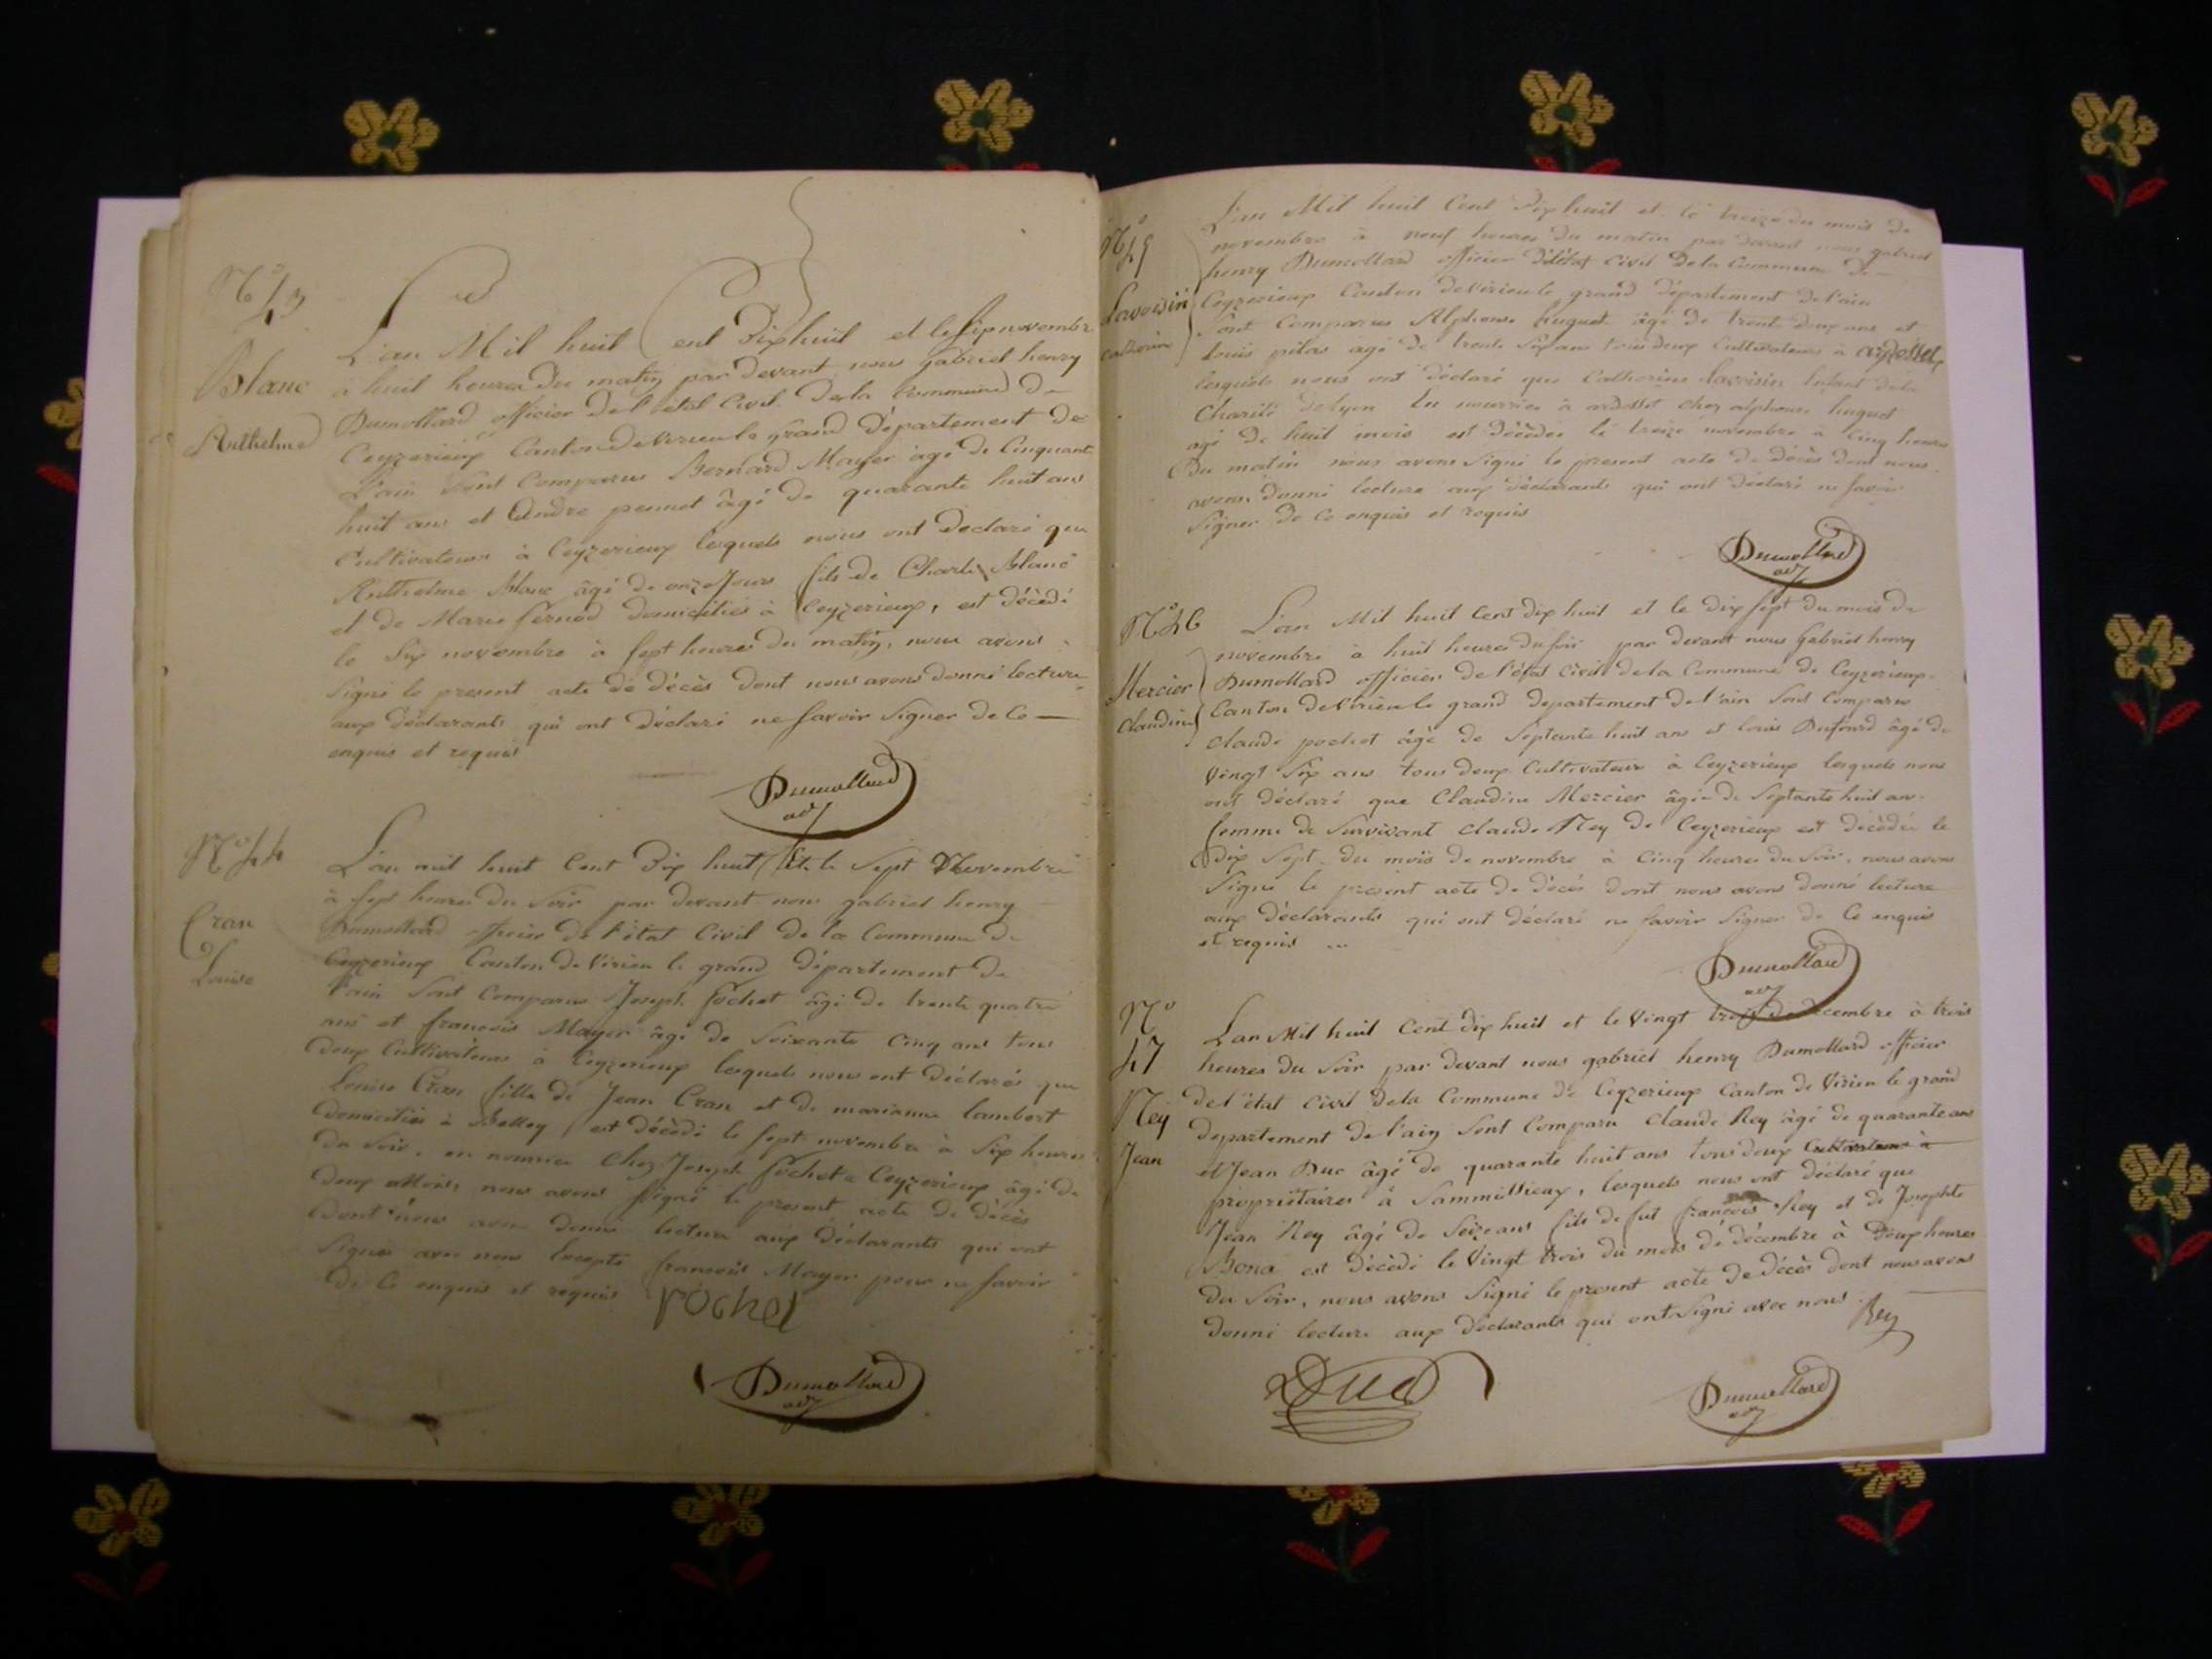 N° 43
Blanc
Anthelme
L'an Mil huit Cent Dixhuit et le Six novembre
à huit heures du matin par devant nous Gabriel henry
Dumollard officier de l'état Civil de la Commune de
Ceyzerieux Canton de Virieu le Grand Département de
l'ain Sont Comparus Bernard Mayer âgé de Cinquante
huit ans et Andre pennet âgé de quarante huit ans
Cultivateurs à Ceyzerieux lesquels nous ont Declaré que
Anthelme Blanc âgé de onze Jours fils de Charle Blanc
et de Marie fernod Domiciliés à Ceyzerieux, est Décédé
le Six novembre à Sept heures du matin, nous avons
Signé le present acte de Décès Dont nous avons Donné lecture
aux Déclarants qui ont Déclaré ne Savoir Signer de Ce —
enquis et requis
Dumollard
adj
N° 44
Cran
Louise
L'an mil huit Cent Dix huit Et le Sept Novembre
à Sept heures Du Soir par devant nous gabriel henry
Dumollard officier de l'état Civil de la Commune de
Ceyzerieux Canton de Virieu le grand Département de
l'ain Sont Comparus Joseph Pochet âgé de trente quatre
ans et francois Mayer âgé de Soixante Cinq ans tous
Deux Cultivateurs à Ceyzerieux lesquels nous ont Déclarés que
Louise Cran fille de Jean Cran et de marianne lambert
Domiciliés à Belley est Décédé le Sept novembre à Six heures
du Soir, en nourrice Chez Joseph Pochet a Ceyzerieux âgé de
Deux Mois, nous avons Signé le present acte de Décès
Dont nous avons Donné lecture aux Déclarants qui ont
Signés avec nous Excepté francois Mayer pour ne Savoir
de Ce enquis et requis Pochet
Dumollard
adj
N° 45
Lavoisin
Catherine
L'an Mil huit Cent Dix huit et le treize du mois de
novembre à neuf heures du matin par devant nous gabriel
henry Dumollard officier D'état Civil de la Commune De
Ceyzerieux Canton de Virieu le grand département de l'ain
Sont Comparus Alphonse huguet âgé de trente Deux ans et
Louis pilas agé de trente Six ans tous deux Cultivateurs à ardosset
lesquels nous ont Déclaré que Catherine lavoisin Enfant de la
Charité de lyon En nourrice à ardosset chez alphonse huguet
agé de huit mois est Décédée le treize novembre à Cinq heures
Du matin nous avons Signé le present acte de Décès dont nous
avons Donné lecture aux Déclarants qui ont Déclaré ne Savoir
Signer de Ce enquis et requis
Dumollard
adj
N° 46
Mercier
Claudine
L'an Mil huit Cent dix huit et le Dix Sept du mois de
novembre à huit heures du Soir par devant nous Gabriel henry
Dumollard officier de l'état Civil de la Commune de Ceyzerieux
Canton de Virieu le grand département de l'ain Sont Comparus
claude pochet âgé de Septante huit ans et louis Dufourd âgé de
Vingt Six ans tous deux Cultivateurs à Ceyzerieux lesquels nous
ont déclaré que Claudine Mercier âgée de Septante huit ans
femme de Survivant claude Rey de Ceyzerieux est décédée le
dix Sept du mois de novembre à Cinq heures du Soir, nous avons
Signé le présent acte de décés dont nous avons donné lecture
aux déclarants qui ont déclaré ne Savoir Signer de Ce enquis
et requis
Dumollard
adj
N°
47
Rey
Jean
L'an Mil huit Cent dix huit et le Vingt trois décembre à trois
heures du Soir par devant nous gabriel henry Dumollard officier
de l'état civil de la Commune de Ceyzerieux Canton de Virieu le grand
departement de l'ain Sont Comparu Claude Rey âgé de quarante ans
et Jean Duc âgé de quarante huit ans tous deux Cultivateurs à
propriétaires à Sammissieux, lesquels nous ont déclaré que
Jean Rey âgé de Seize ans fils de fut francois Rey et de Josephte
Bona est décédé le Vingt trois du mois de décembre à Deux heures
du Soir, nous avons Signé le present acte de décès dont nous avons
donné lecture aux déclarants qui ont Signé avec nous. Rey
Duc
Dumollard
adj